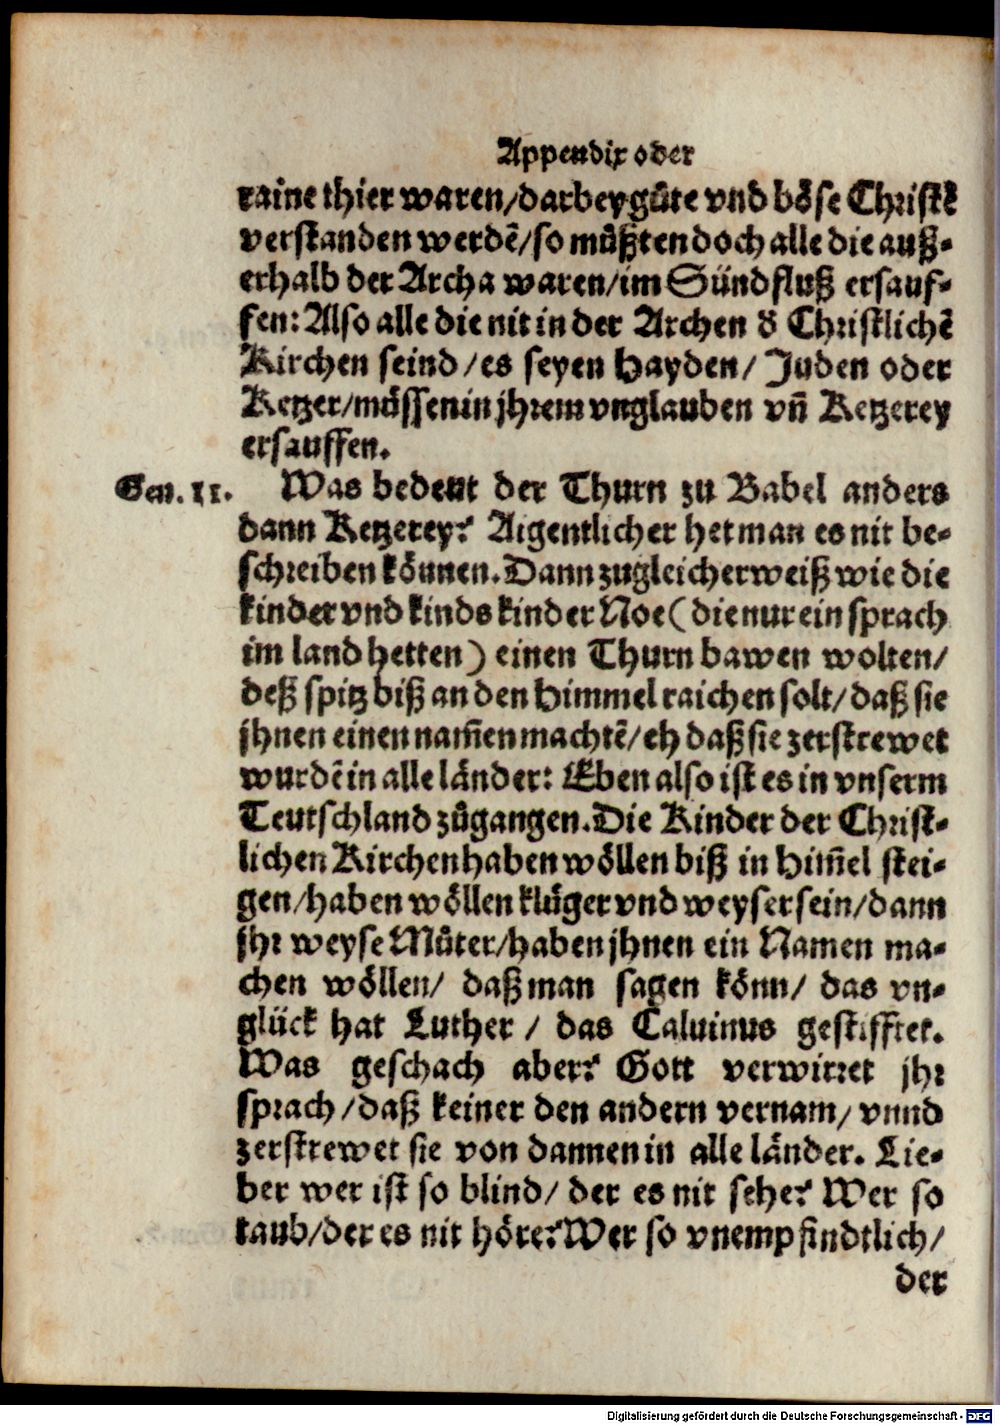 Appendix oder
raine thier waren/darbey gůte vnd böse Christẽ
verstanden werdẽ/so můßten doch alle die auß-
erhalb der Archa waren/im Sündfluß ersauf-
fen: Also alle die nit in der Archen d̕ Christlichẽ
Kirchen seind/es seyen Hayden/ Juden oder
Ketzer/můssen in jhrem vnglauben vñ Ketzerey
ersauffen.
Gen. 11. Was bedeut der Thurn zu Babel anders
dann Ketzerey? Aigentlicher het man es nit be-
schreiben können. Dann zugleicherweiß wie die
kinder vnd kinds kinder Noe (die nur ein sprach
im land hetten) einen Thurn bawen wolten/
deß spitz biß an den Himmel raichen solt/daß sie
jhnen einen nam̃en machtẽ/eh daß sie zerstrewet
wurdẽ in alle länder: Eben also ist es in vnserm
Teutschland zůgangen. Die Kinder der Christ-
lichen Kirchen haben wöllen biß in Him̃el stei-
gen/haben wöllen klůger vnd weyser sein/dann
jhr weyse Můter/haben jhnen ein Namen ma-
chen wöllen/ daß man sagen könn/ das vn-
glück hat Luther / das Caluinus gestifftet.
Was geschach aber? Gott verwirret jhr
sprach/daß keiner den andern vernam/ vnnd
zerstrewet sie von dannen in alle länder. Lie-
ber wer ist so blind/ der es nit sehe? Wer so
taub/der es nit höre? Wer so vnempfindtlich/
der
Digitalisierung gefördert durch die Deutsche Forschungsgemeinschaft - DFG